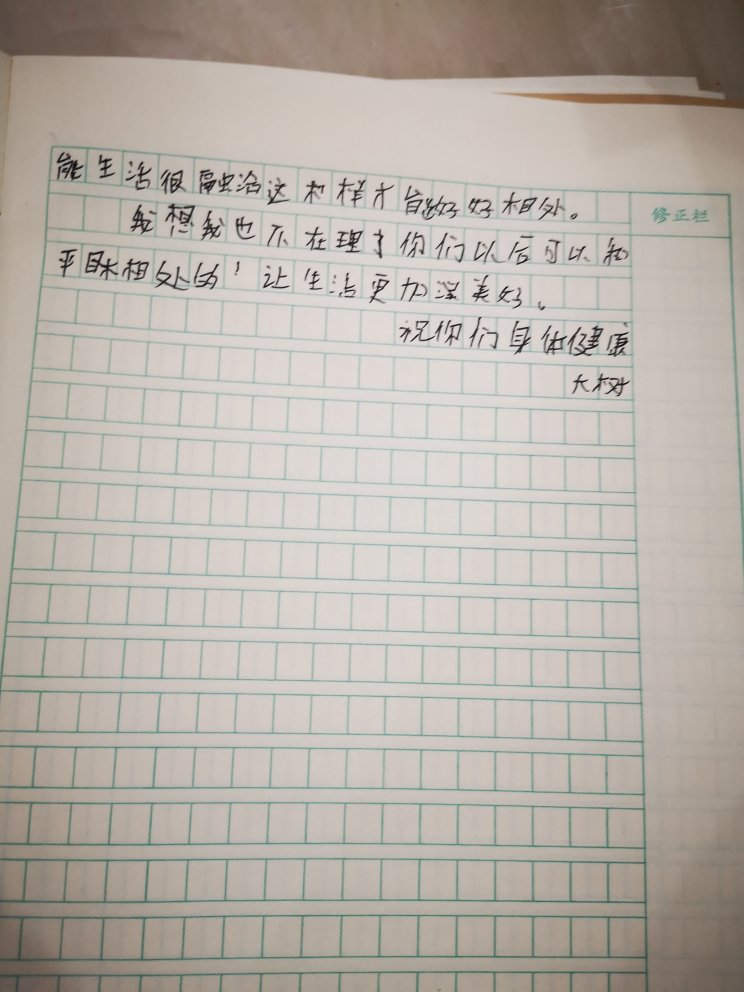 能生活很融洽这和样才能好好相处。
修正栏
我想我也不在理了你们以后可以和
平相处的，让生活更加深美好。
祝你们身体健康
大树